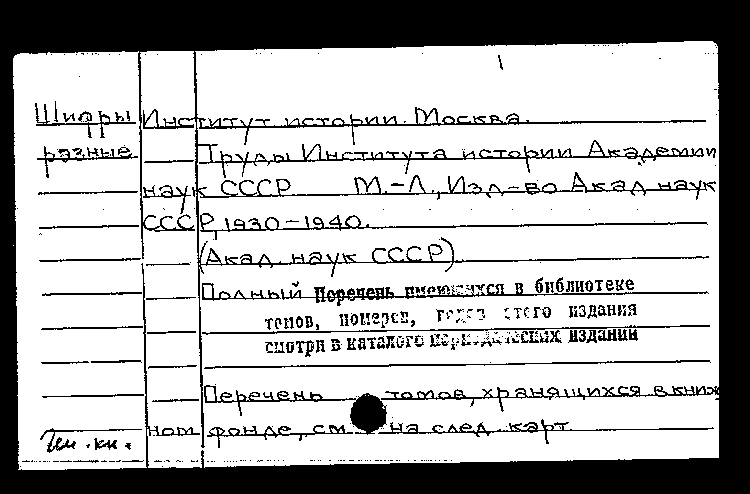 Шифры Институт истории. Москва.
разные Труды Института истории Академии
наук СССР М.-Л., Изд-во Акад. наук
СССР, 1930-1940.
(Акад. наук СССР)
Полный Перечень имеющихся в библиотеке
томов, номеров, годов этого издания
смотри в каталоге периодических изданий
Перечень томов, хранящихся в книж
ном фонде, см. на след. карт
кн.